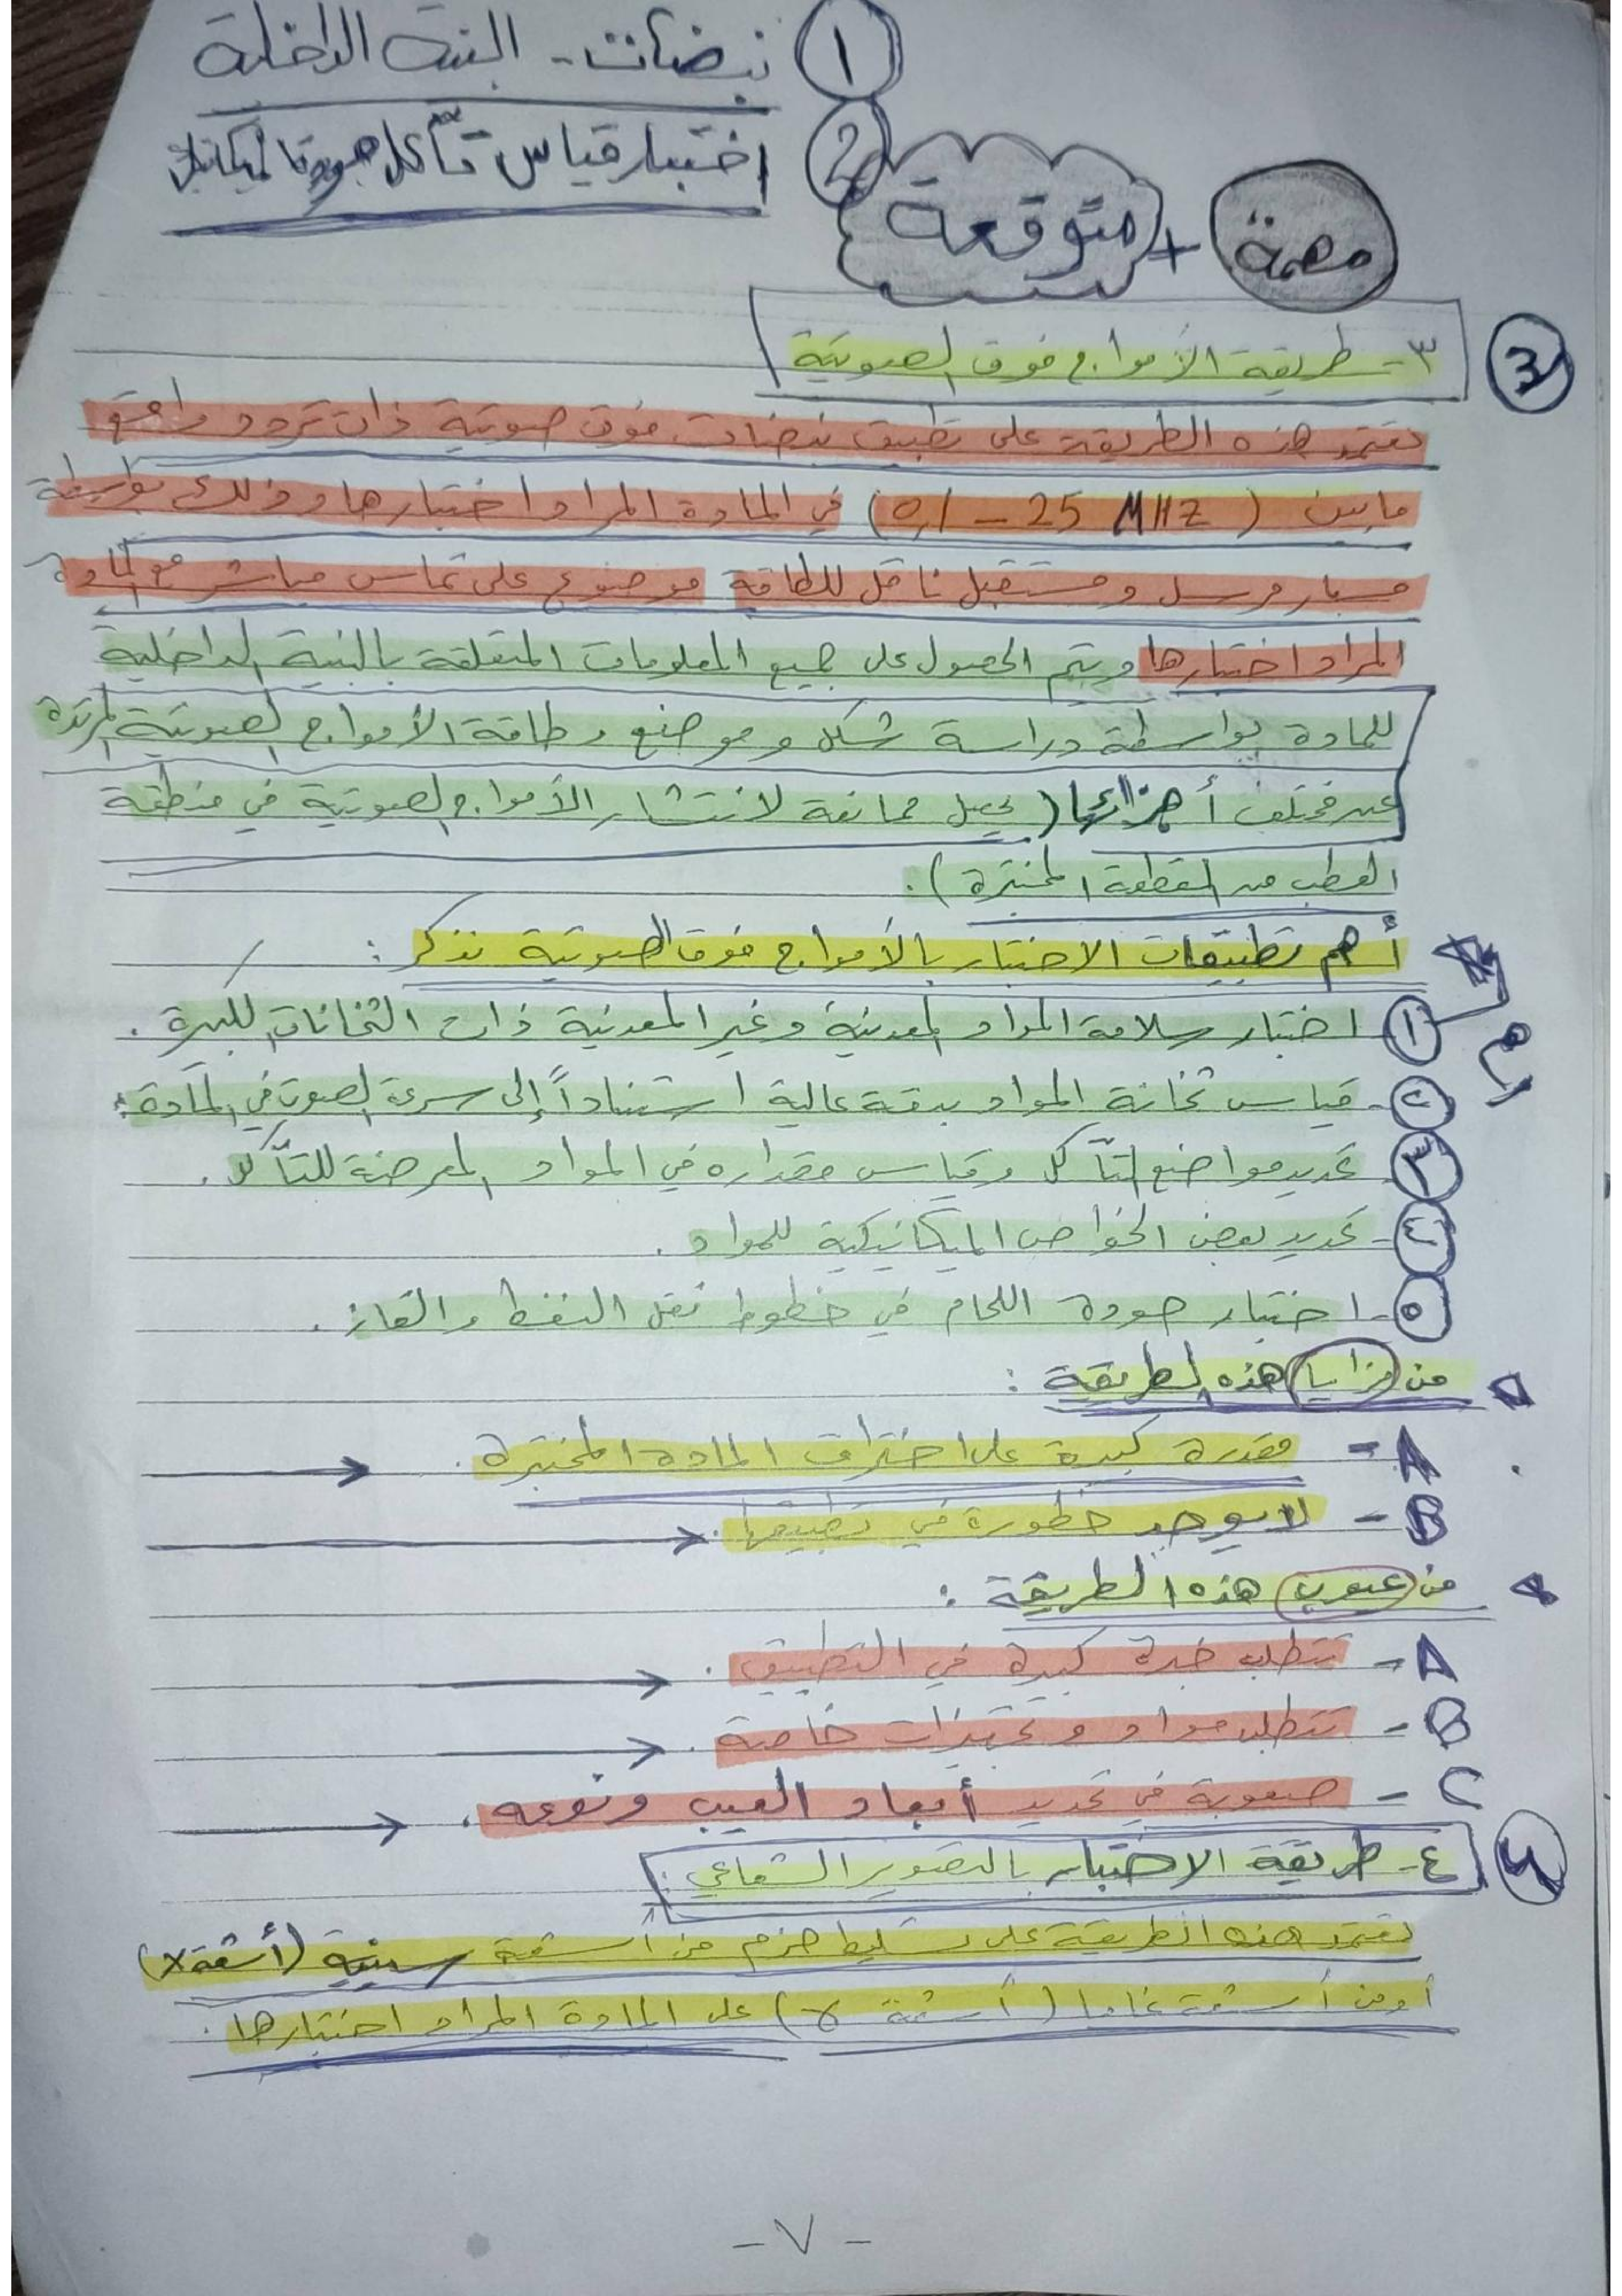 ① نبضات - البنية الداخلية
② اختبار قياس تآكل جودة ميكانيك
مهمة + متوقعة
③ ٣- طريقة الأمواج فوق الصوتية
تعتمد هذه الطريقة على تطبيق نبضات فوق صوتية ذات تردد واقع
مابين (0,1 – 25 MHZ) في المادة المراد اختبارها وذلك بواسطة
مسبار مرسل ومستقبل ناقل للطاقة موضوع على تماس مباشر مع المادة
المراد اختبارها ويتم الحصول على جميع المعلومات المتعلقة بالبنية الداخلية
للمادة بواسطة دراسة شكل وموضع وطاقة الأمواج الصوتية المرتدة
عن مختلف أجزائها (يحصل ممانعة لانتشار الأمواج الصوتية في منطقة
العطب من القطعة المختبرة).
أهم تطبيقات الاختبار بالأمواج فوق الصوتية نذكر :
① اختبار سلامة المواد المعدنية وغير المعدنية ذات الثخانات الكبيرة .
٢- قياس ثخانة المواد بدقة عالية استناداً إلى سرعة الصوت في المادة .
٣- تحديد مواضع التآكل وقياس مقداره في المواد المعرضة للتآكل .
٤- تحديد بعض الخواص الميكانيكية للمواد .
٥- اختبار جودة اللحام في خطوط نقل النفط والغاز .
من مزايا هذه الطريقة :
A - مقدرة كبيرة على اختراق المادة المختبرة .
B - لا يوجد خطورة في تطبيقها .
من عيوب هذه الطريقة :
A - تتطلب خبرة كبيرة في التطبيق .
B - تتطلب مواد وتجهيزات خاصة .
C - صعوبة في تحديد أبعاد العيب ونوعه .
④ ٤- طريقة الاختبار بالتصوير الشعاعي :
تعتمد هذه الطريقة على تسليط حزم من أشعة سينية (أشعة X)
أو من أشعة غاما (أشعة γ) على المادة المراد اختبارها .
- ٧ -